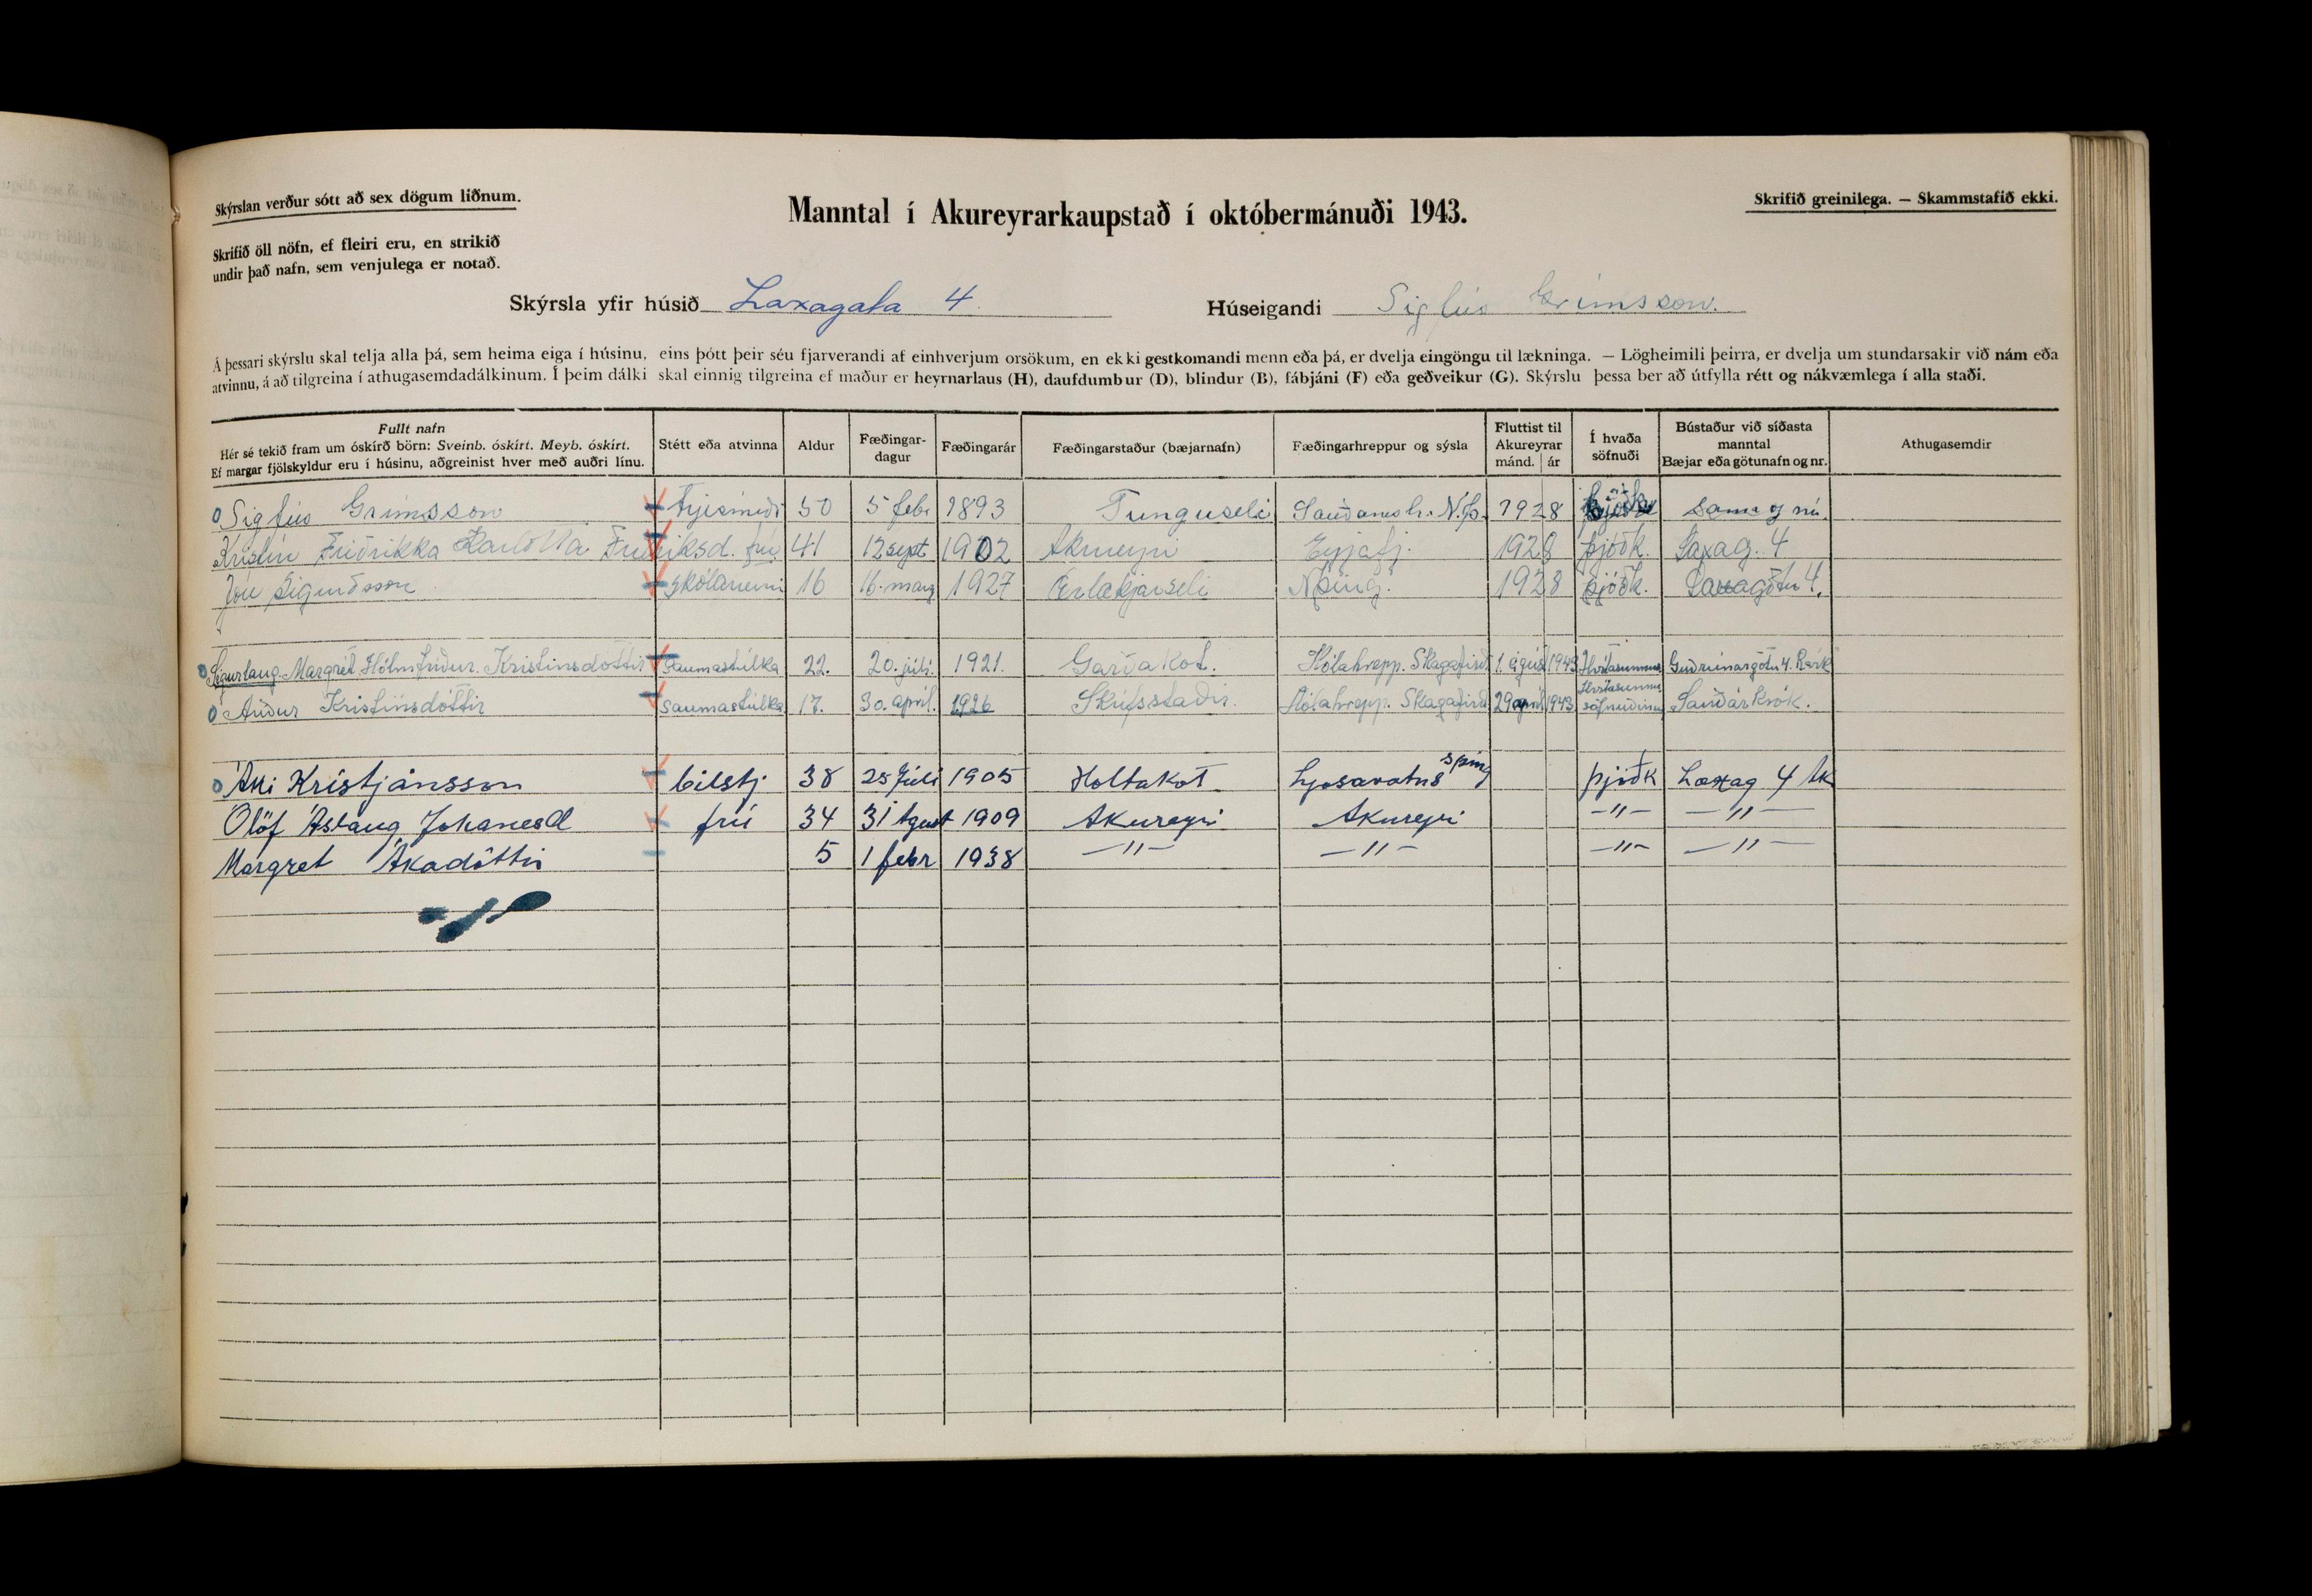 Skýrslan verður sótt að sex dögum liðnum.
Manntal í Akureyrarkaupstað í októbermánuði 1943.
Skrifið greinilega. — Skammstafið ekki.
Skrifið öll nöfn, ef fleiri eru, en strikið
undir það nafn, sem venjulega er notað.
Skýrsla yfir húsið Laxagata 4. Húseigandi Sigfús Grímsson.
Á þessari skýrslu skal telja alla þá, sem heima eiga í húsinu, eins þótt þeir séu fjarverandi af einhverjum orsökum, en ekki gestkomandi menn eða þá, er dvelja eingöngu til lækninga. — Lögheimili þeirra, er dvelja um stundarsakir við nám eða
atvinnu, á að tilgreina í athugasemdadálkinum. Í þeim dálki skal einnig tilgreina ef maður er heyrnarlaus (H), daufdumbur (D), blindur (B), fábjáni (F) eða geðveikur (G). Skýrslu þessa ber að útfylla rétt og nákvæmlega í alla staði.
Fullt nafn
Hér sé tekið fram um óskírð börn: Sveinb. óskírt. Meyb. óskírt.
Ef margar fjölskyldur eru í húsinu, aðgreinist hver með auðri línu.
Stétt eða atvinna
Aldur
Fæðingar-
dagur
Fæðingarár
Fæðingarstaður (bæjarnafn)
Fæðingarhreppur og sýsla
Fluttist til
Akureyrar
mánd. ár
Í hvaða
söfnuði
Bústaður við síðasta
manntal
Bæjar eða götunafn og nr.
Athugasemdir
Sigfús Grímsson 50 5 febr 1893 Tunguseli Sauðanesh. N.þ. 1928 sama og nú.
Kristín Friðrikka Karlotta Friðriksd. frú 41 12 sept 1902 Akureyri Eyjafj. 1928 þjóðk. Laxag. 4
Jón Sigurðsson skólanemi 16 16. marz 1927 N þing. 1928 þjóðk. Laxagötu 4.
Sigurlaug Margrét Hólmfríður Kristinsdóttir Saumastúlka 22. 20. júlí. 1921. Garðakot. Hólahrepp. Skagafirði 1. ágúst 1943 Guðrúnargötu 4. Ravík
Auður Kristinsdóttir Saumastúlka 17. 30. apríl. 1926 Skúfsstaðir. Hólahrepp. Skagafirði 29 apríl 1943 Hvítasunnu söfnuðinum Sauðárkrók.
Áki Kristjánsson bilstj 38 25 Júlí 1905 Holtakot Ljosavatns S þing þjóðk Laxag 4 Ak
Ólöf Áslaug Johanesd frú 34 31 Agust 1909 Akureyri Akureyri —"— —"—
Margret Ákadóttir 5 1 febr 1938 —"— —"— —"— —"—